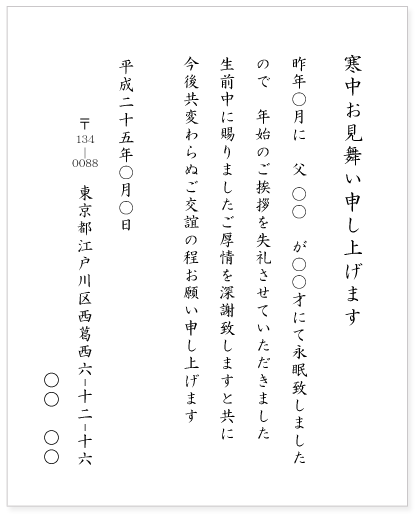 寒中お見舞い申し上げます
昨年〇月に　父　〇〇　が〇〇才にて永眠致しました
ので　年始のご挨拶を失礼させていただきました
生前中に賜りましたご厚情を深謝致しますと共に
今後共変わらぬご交誼の程お願い申し上げます
平成二十五年〇月〇日
〒134-0088　東京都江戸川区西葛西六-十二-十六
〇〇　〇〇